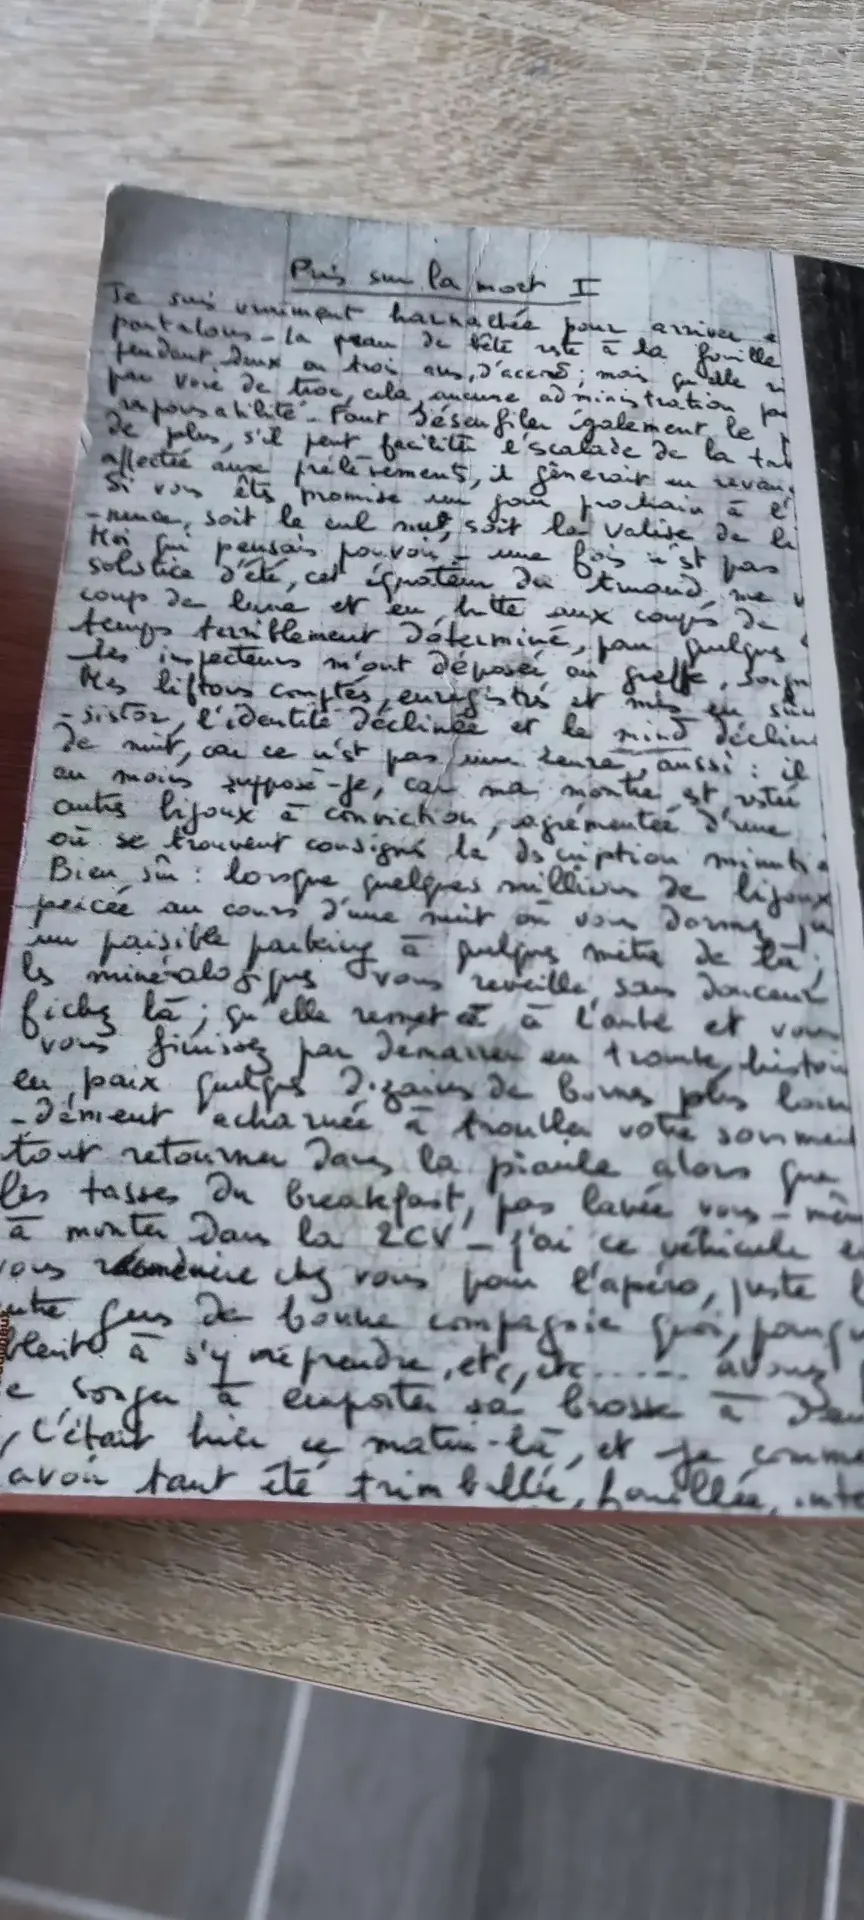 Pris sur la mort II
Je suis vraiment harnachée pour arriver
pantalons - la peau de bête reste à la fouille
pendant deux ou trois ans, d'accord ; mais qu'elle
par voie de troc, cela, aucune administration
responsabilité. Faut désenfiler également le
de plus, s'il peut faciliter l'escalade de la
affectée aux prélèvements, il gênerait en
Si vous êtes promise un jour prochain à
soit le cul nu, soit la valise de
Moi qui pensais pouvoir - une fois n'est pas
solstice d'été, cet équateur du me
coup de lune et en butte aux coups de
temps terriblement déterminé, par quelques
les inspecteurs m'ont déposée au greffe,
Mes liftous comptés, enregistrés et mis en
-sistor, l'identité déclinée et le mind
de nuit, car ce n'est pas une heure, aussi : il
au moins suppose-je, car ma montre est restée
autres bijoux à conviction, agrémentée d'une
où se trouvent consigné la description
Bien sûr : lorsque quelques millions de bijoux
au cours d'une nuit où vous
un paisible parking à quelques mètres de là ;
les minéralogiques vous réveille sans douceur
fichez là ; qu'elle remet çà à l'aube et vous
vous finissez par démarrer en trombe,
en paix quelques dizaines de bornes plus loin
-dément acharnée à troubler votre sommeil
tout retourner dans la piaule alors que
les tasses du breakfast, pas lavée vous-même
à monter dans la 2CV - j'ai ce véhicule
chez vous pour l'apéro, juste
gens de bonne compagnie quoi,
à s'y méprendre, etc, etc..... avouez
songer à emporter sa brosse à
, c'était hier ce matin-là, et je
avoir tant été trimballée, fouillée,